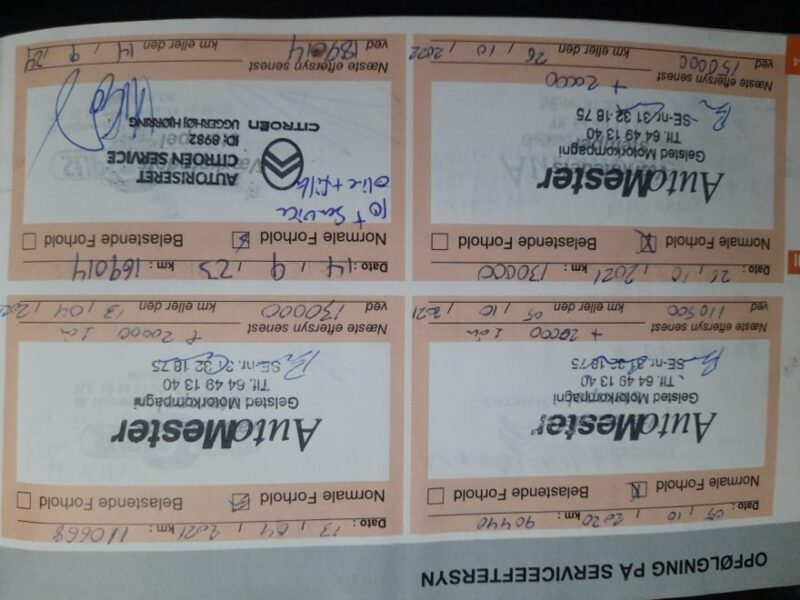 OPFØLGNING PÅ SERVICEEFTERSYN
Dato : 05 / 10 / 2020 km : 90440
Normale Forhold Belastende Forhold
AutoMester
Gelsted Motorkompagni
Tlf. 64 49 13 40
SE-nr. 31 32 18 75
+ 20000
Næste eftersyn senest
ved 110500 km eller den 05 / 10 / 2021
Dato : 13 / 04 / 2021 km : 110668
Normale Forhold Belastende Forhold
AutoMester
Gelsted Motorkompagni
Tlf. 64 49 13 40
SE-nr. 31 32 18 75
+ 20000
Næste eftersyn senest
ved 130000 km eller den 13 / 04 /
Dato : 26 / 10 / 2021 km : 130000
Normale Forhold Belastende Forhold
AutoMester
Gelsted Motorkompagni
Tlf. 64 49 13 40
SE-nr. 31 32 18 75
+ 20000
Næste eftersyn senest
ved 150000 km eller den 26 / 10 / 2022
Dato : 14 / 9 / 23 km : 169014
Normale Forhold Belastende Forhold
+ Service
olie + filtr
AUTORISERET
CITROËN SERVICE
ID: 8982
CITROËN UGGERHØJ HJØRRING
Næste eftersyn senest
ved 189014 km eller den 14 / 9 / 24